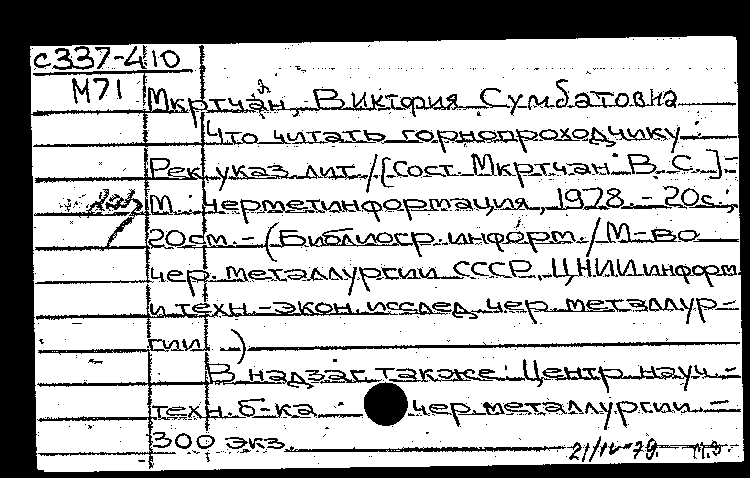 с337-410
М71
Мкртчан, Виктория Сумбатовна
Что читать горнопроходчику:
Рек. указ. лит. / [Сост. Мкртчан В. С.] -
М.: Черметинформация, 1978. - 20с.;
20см. - (Библиогр. информ. / М-во
чер. металлургии СССР, ЦНИИ информ.
и техн.-экон. исслед. чер. металлур-
гии)
В надзаг. также: Центр. науч.-
техн. б-ка чер. металлургии -
300 экз.
21/IV-79. М.З.